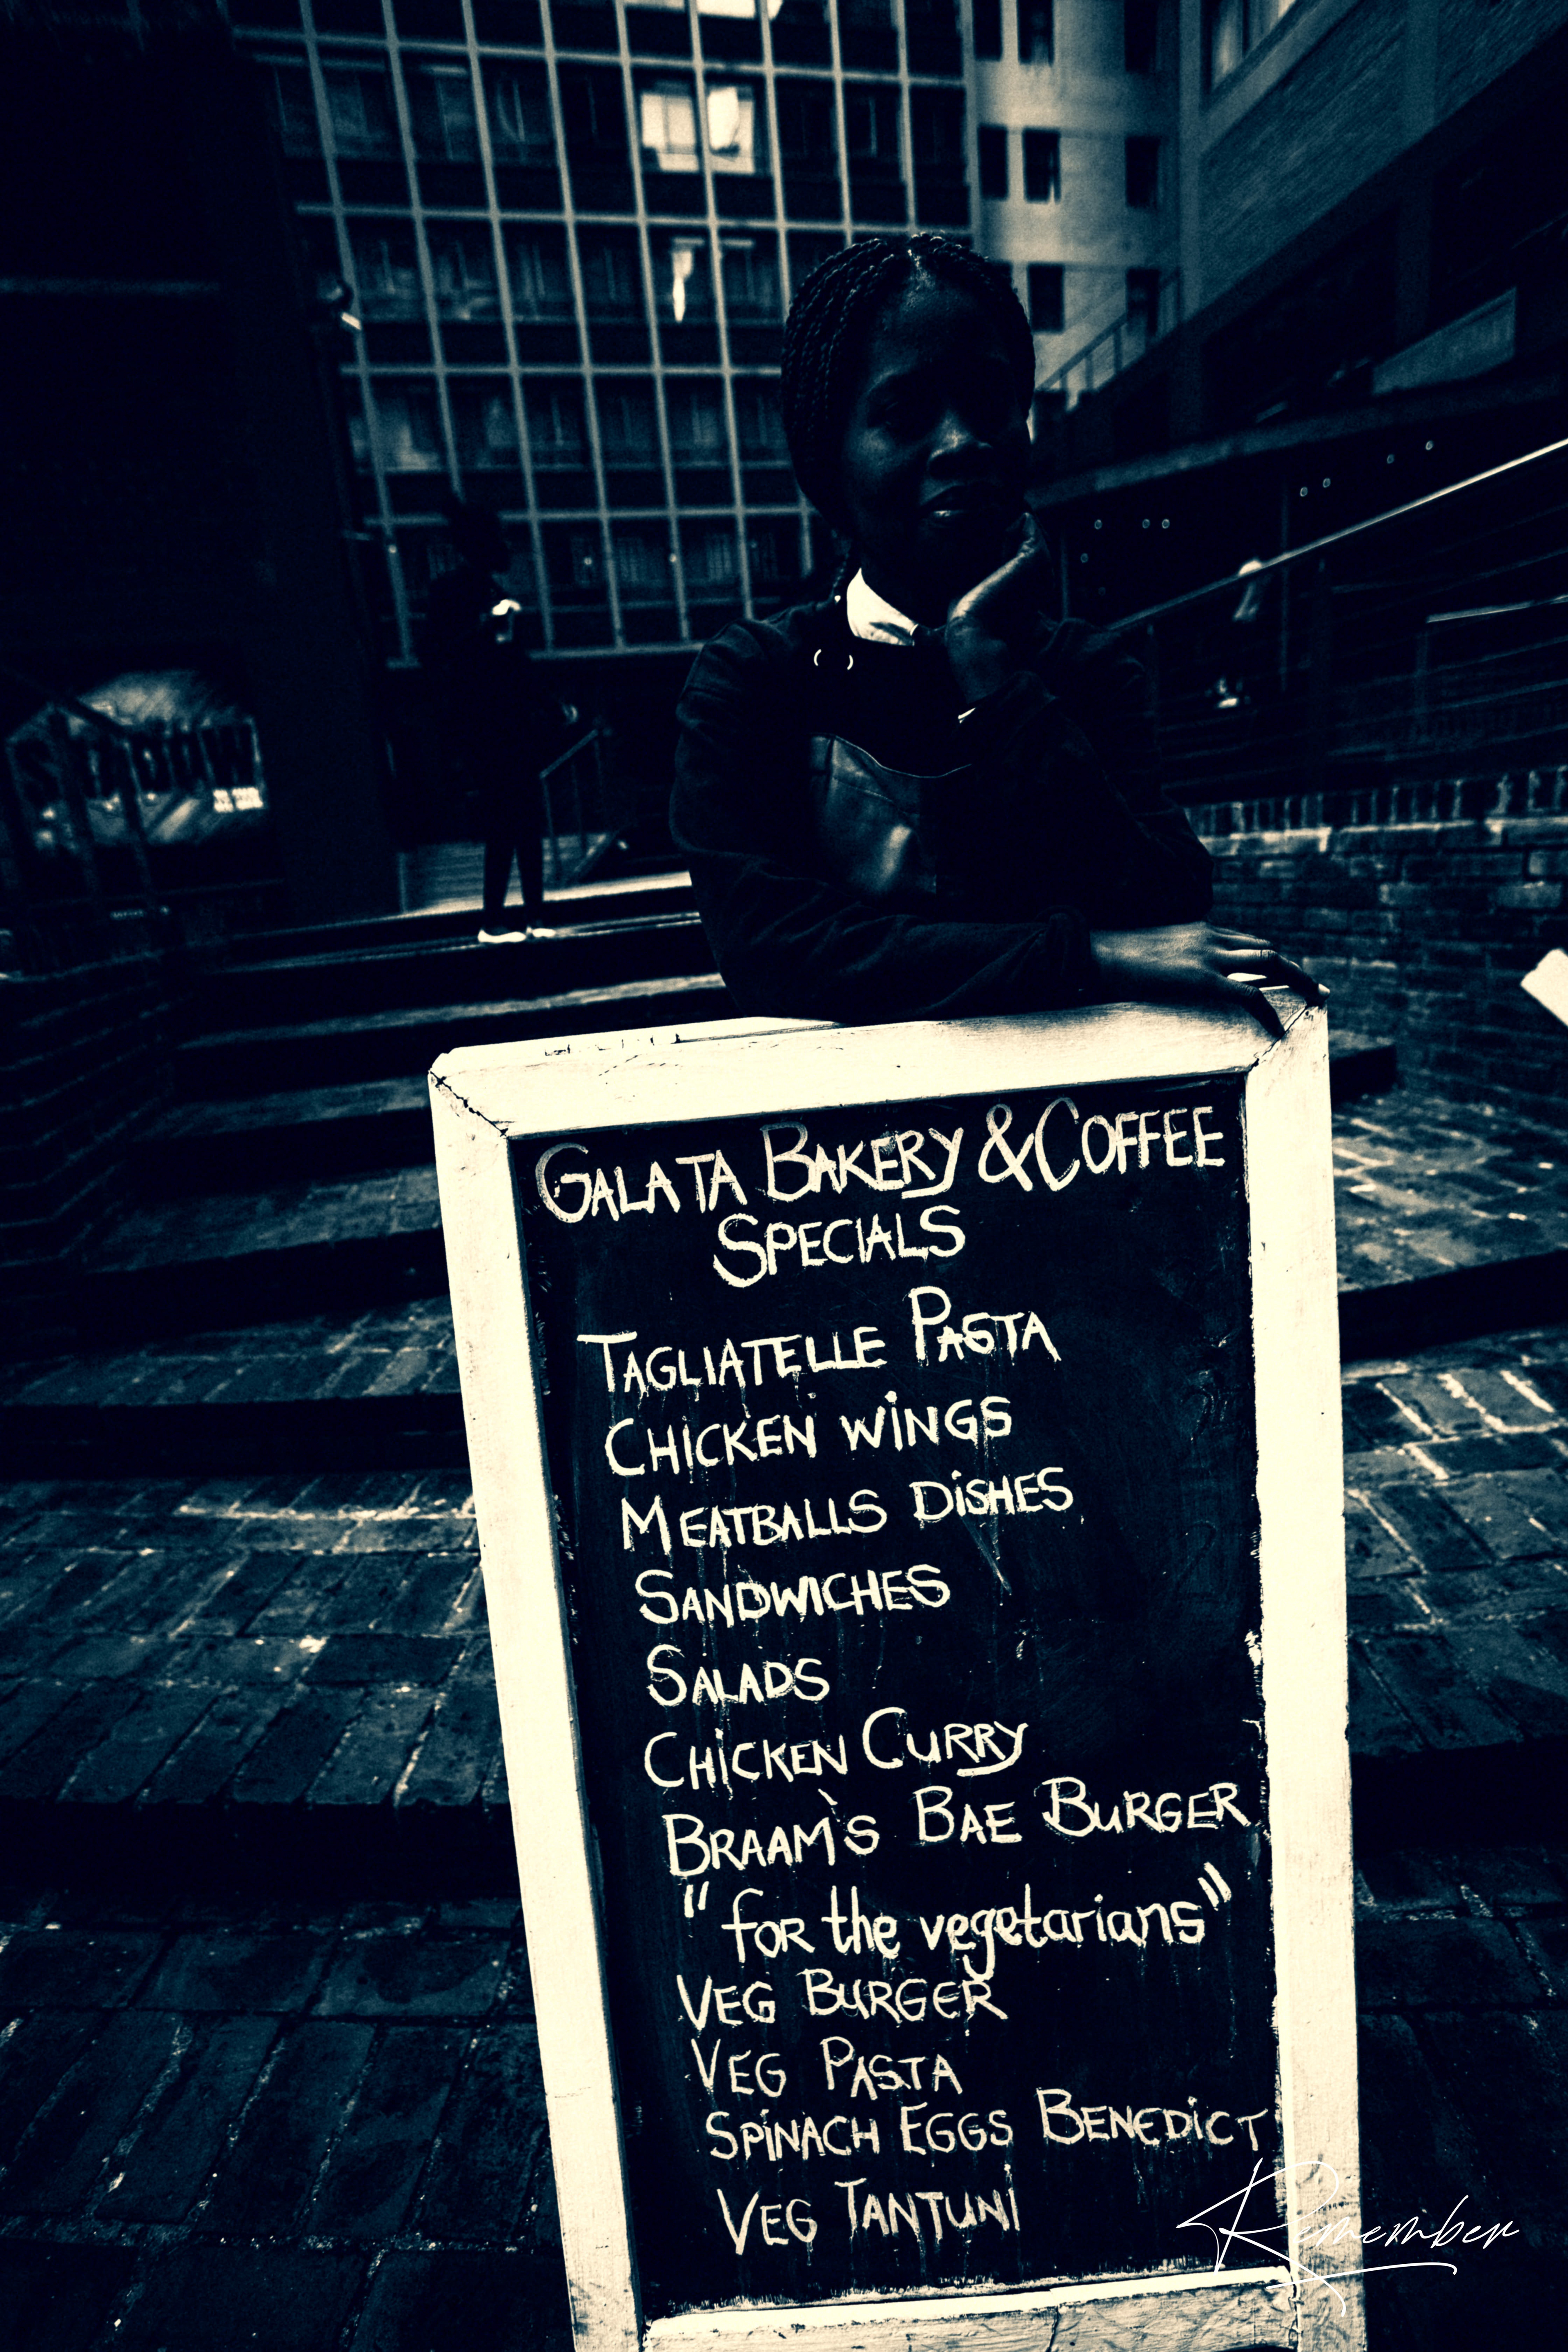 GALATA BAKERY & COFFEE
SPECIALS
TAGLIATELLE PASTA
CHICKEN WINGS
MEATBALLS DISHES
SANDWICHES
SALADS
CHICKEN CURRY
BRAAM'S BAE BURGER
"for the vegetarians"
VEG BURGER
VEG PASTA
SPINACH EGGS BENEDICT
VEG TANTUNI
Remember